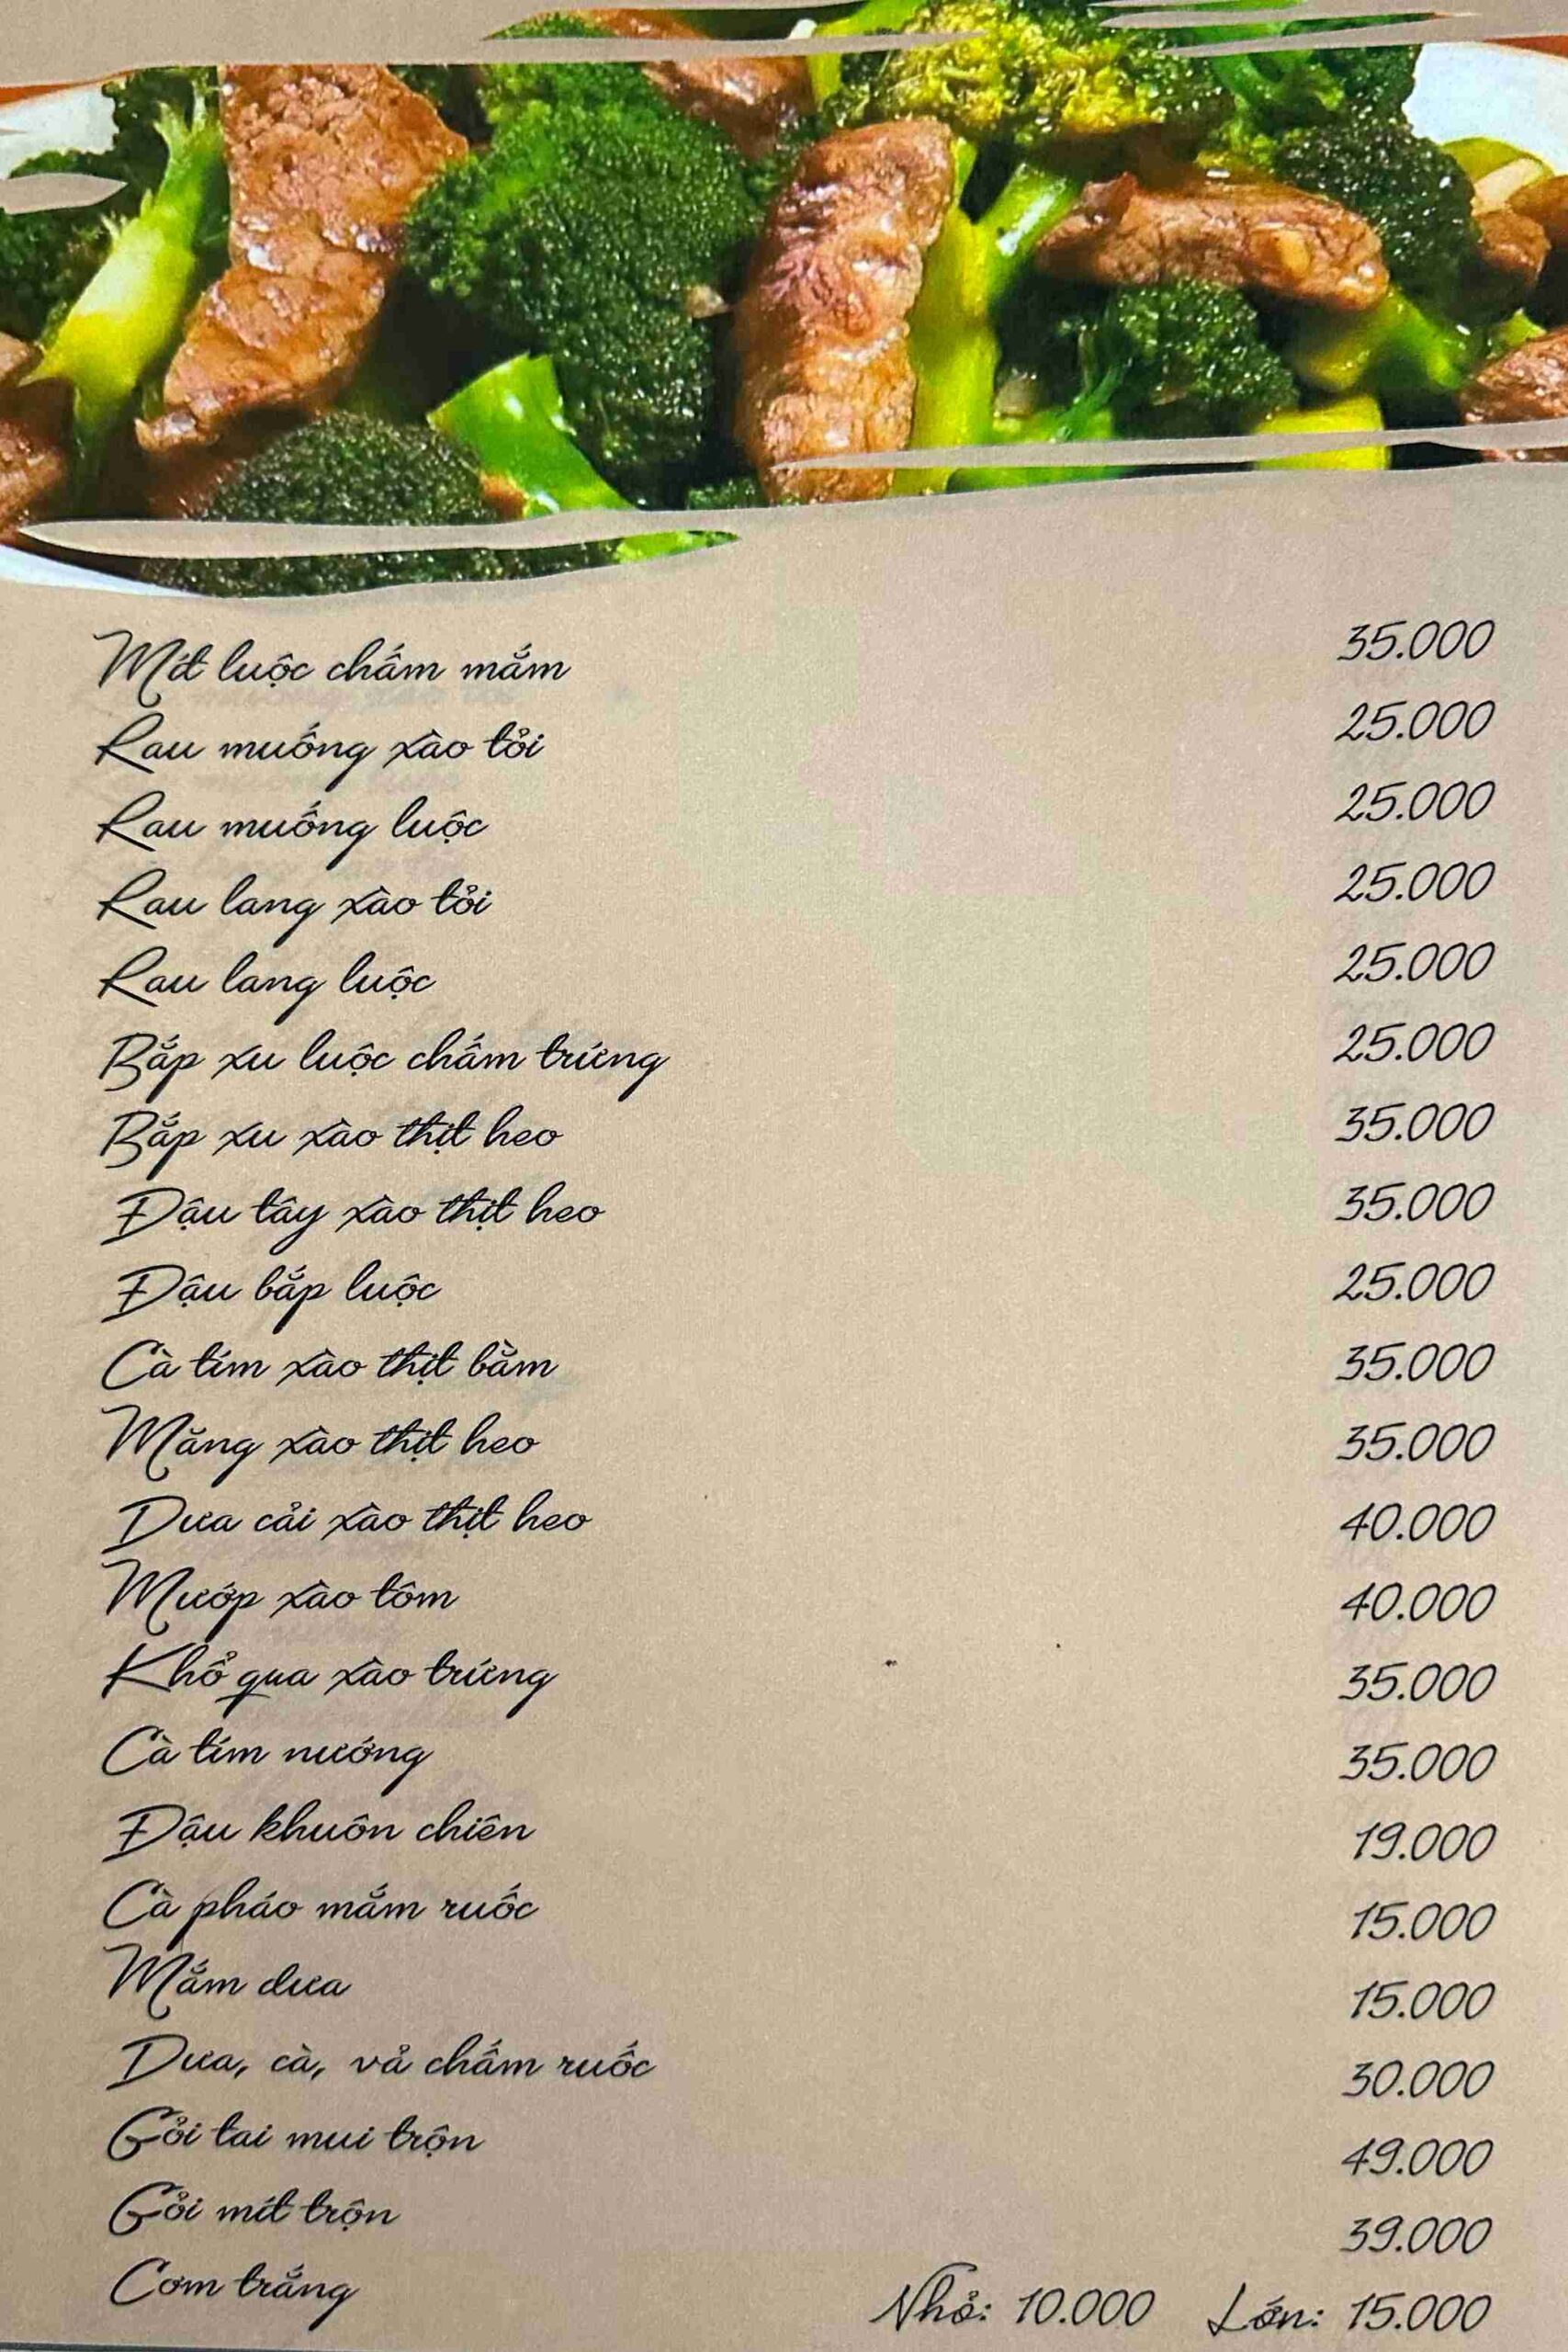 Mít luộc chấm mắm 35.000
Rau muống xào tỏi 25.000
Rau muống luộc 25.000
Rau lang xào tỏi 25.000
Rau lang luộc 25.000
Bắp xu luộc chấm trứng 25.000
Bắp xu xào thịt heo 35.000
Đậu tây xào thịt heo 35.000
Đậu bắp luộc 25.000
Cà tím xào thịt bằm 35.000
Măng xào thịt heo 35.000
Dưa cải xào thịt heo 40.000
Mướp xào tôm 40.000
Khổ qua xào trứng 35.000
Cà tím nướng 35.000
Đậu khuôn chiên 19.000
Cà pháo mắm ruốc 15.000
Mắm dưa 15.000
Dưa, cà, vả chấm ruốc 30.000
Gỏi tai mui trộn 49.000
Gỏi mít trộn 39.000
Cơm trắng Nhỏ: 10.000 Lớn: 15.000